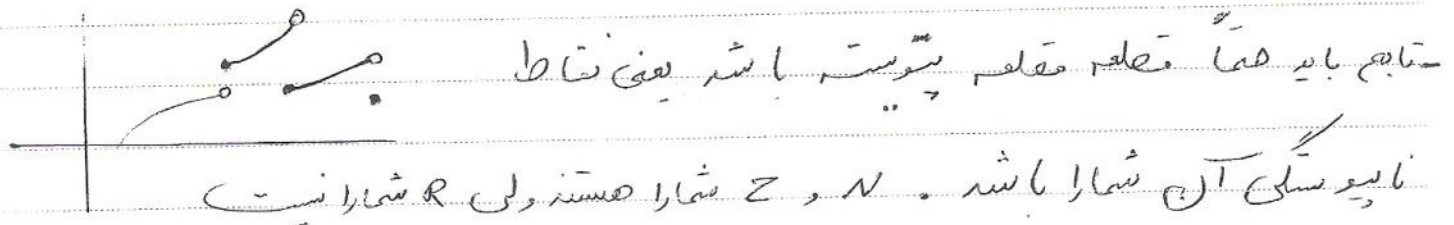 تابع باید حتماً قطعه قطعه پیوسته باشد یعنی نقاط
ناپیوستگی آن شمارا باشد . N و Z شمارا هستند ولی R شمارا نیست